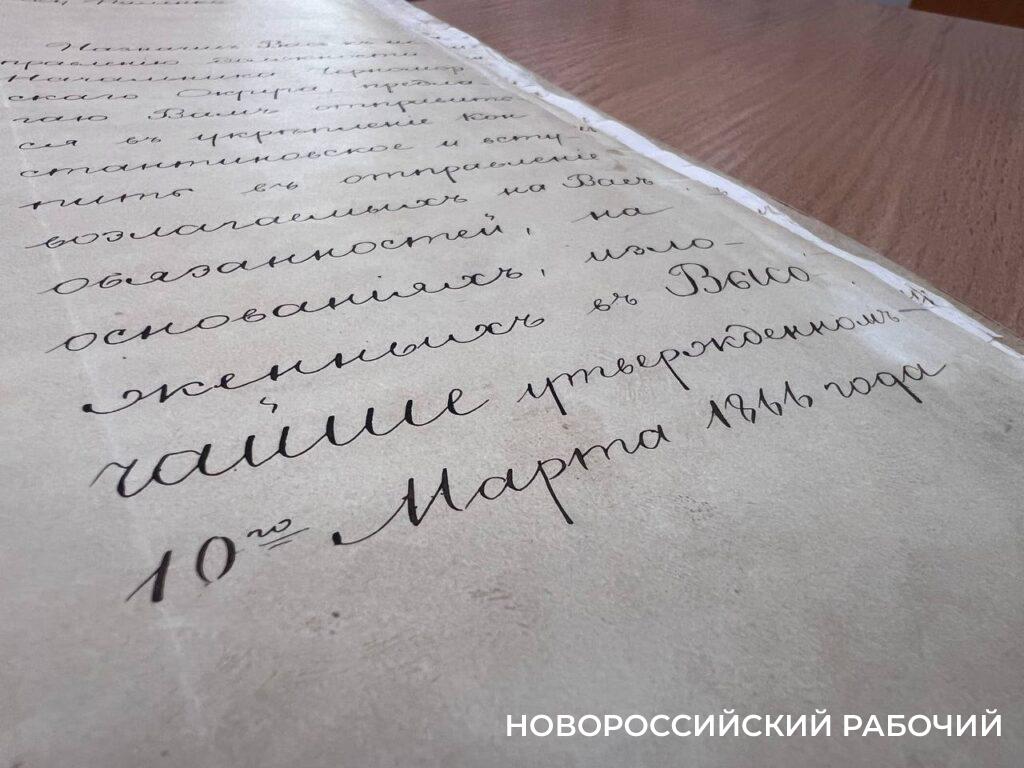 Назначивъ Васъ къ ис
правленію должности
Начальника Черномор
скаго Округа, предла
гаю Вамъ отправить
ся въ укрѣпленіе Кон
стантиновское и всту
пить въ отправленіе
возлагаемыхъ на Васъ
обязанностей, на
основаніяхъ, изло-
женныхъ въ Высо
чайше утвержденномъ
10го Марта 1866 года
НОВОРОССИЙСКИЙ РАБОЧИЙ